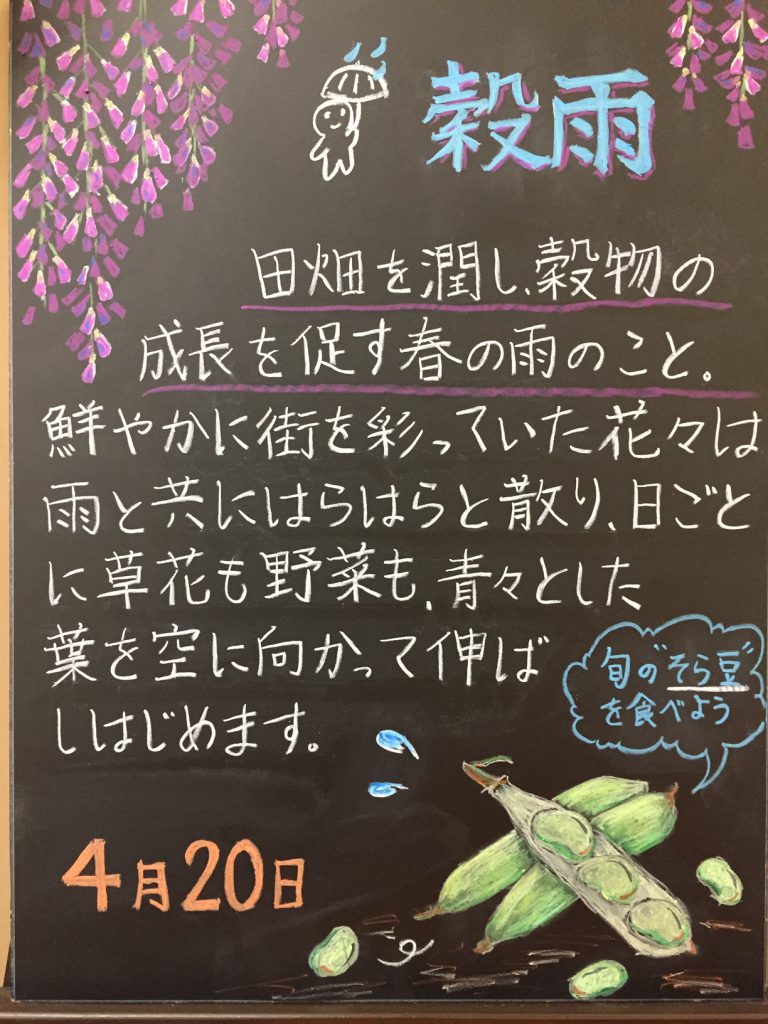 穀雨
田畑を潤し、穀物の
成長を促す春の雨のこと。
鮮やかに街を彩っていた花々は
雨と共にはらはらと散り、日ごと
に草花も野菜も、青々とした
葉を空に向かって伸ば
しはじめます。
旬の"そら豆"
を食べよう
4月20日